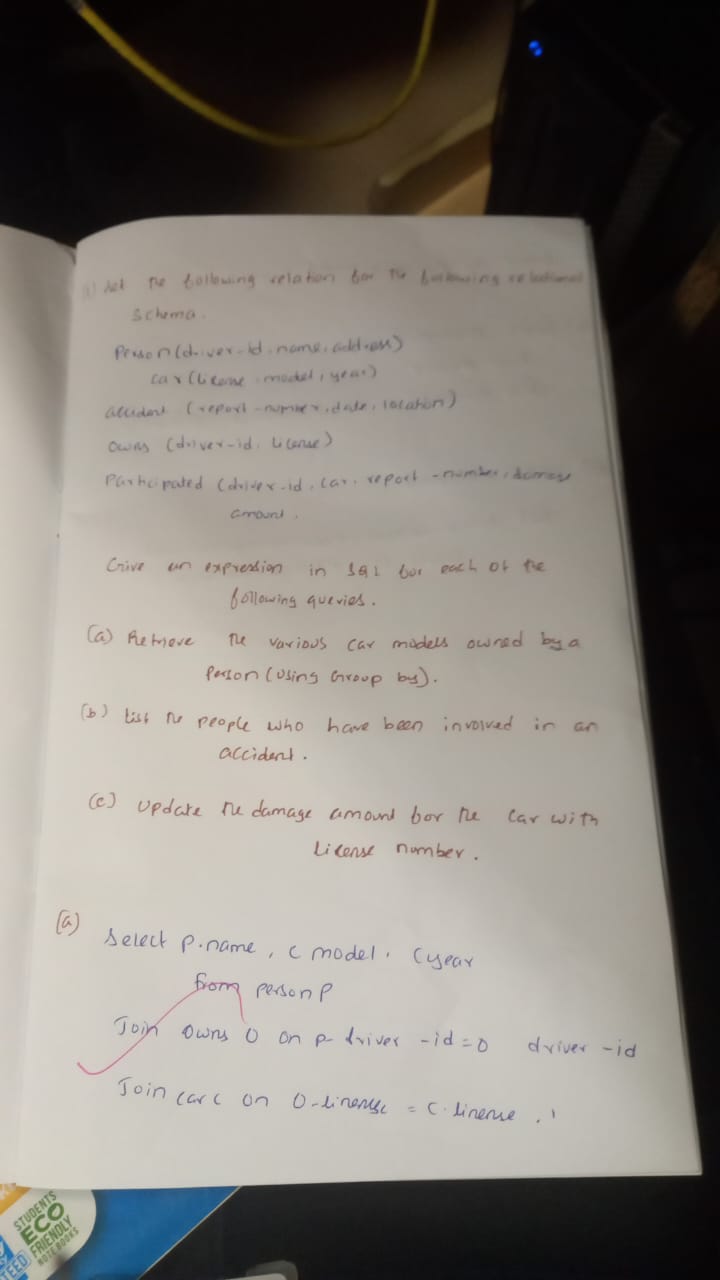 the following relation for the following relational
schema.
Person (driver-id, name, address)
car (license, model, year)
accident (report-number, date, location)
owns (driver-id, license)
Participated (driver-id, car, report-number, damage
amount.
Give an expression in SQL for each of the
following queries.
(a) Retrieve the various car models owned by a
Person (using Group by).
(b) List the people who have been involved in an
accident.
(c) update the damage amount for the car with
License number.
(a)
Select p.name, c model, c year
from person p
Join owns o on p driver-id = o driver-id
Join car c on o-license = c.license.
STUDENTS
ECO
FRIENDLY
NOTE BOOKS